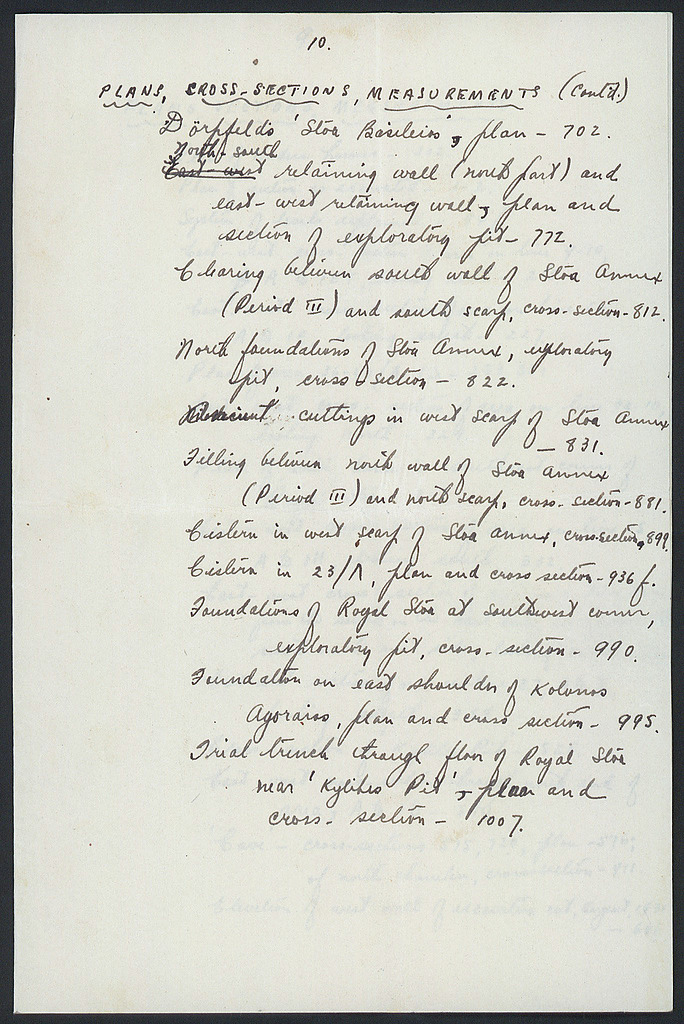 10.
PLANS, CROSS-SECTIONS, MEASUREMENTS (Cont'd.)
Dörpfeld's 'Stoa Basileios', plan - 702.
North-south
East-west retaining wall (north part) and
east-west retaining wall, plan and
section of exploratory pit - 772.
Clearing between south wall of Stoa Annex
(Period III) and south scarp, cross-section - 812.
North foundations of Stoa Annex, exploratory
pit, cross-section - 822.
cuttings in west scarp of Stoa Annex
- 831.
Filling between north wall of Stoa Annex
(Period III) and north scarp, cross-section - 881.
Cistern in west scarp of Stoa Annex, cross-section, 899.
Cistern in 23/Λ, plan and cross section - 936 f.
Foundations of Royal Stoa at southwest corner,
exploratory pit, cross-section - 990.
Foundation on east shoulder of Kolonos
Agoraios, plan and cross section - 995.
Trial trench through floor of Royal Stoa
near 'Kylikes Pit', plan and
cross-section - 1007.